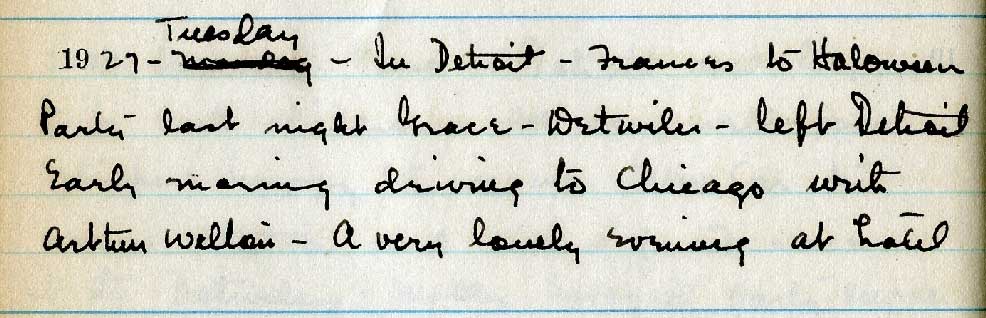 Tuesday
1927 - Monday - In Detroit - Frances to Haloween
Party last night Grace - Detwiler - left Detroit
Early morning driving to Chicago with
Arthur - A very lonely evening at hotel